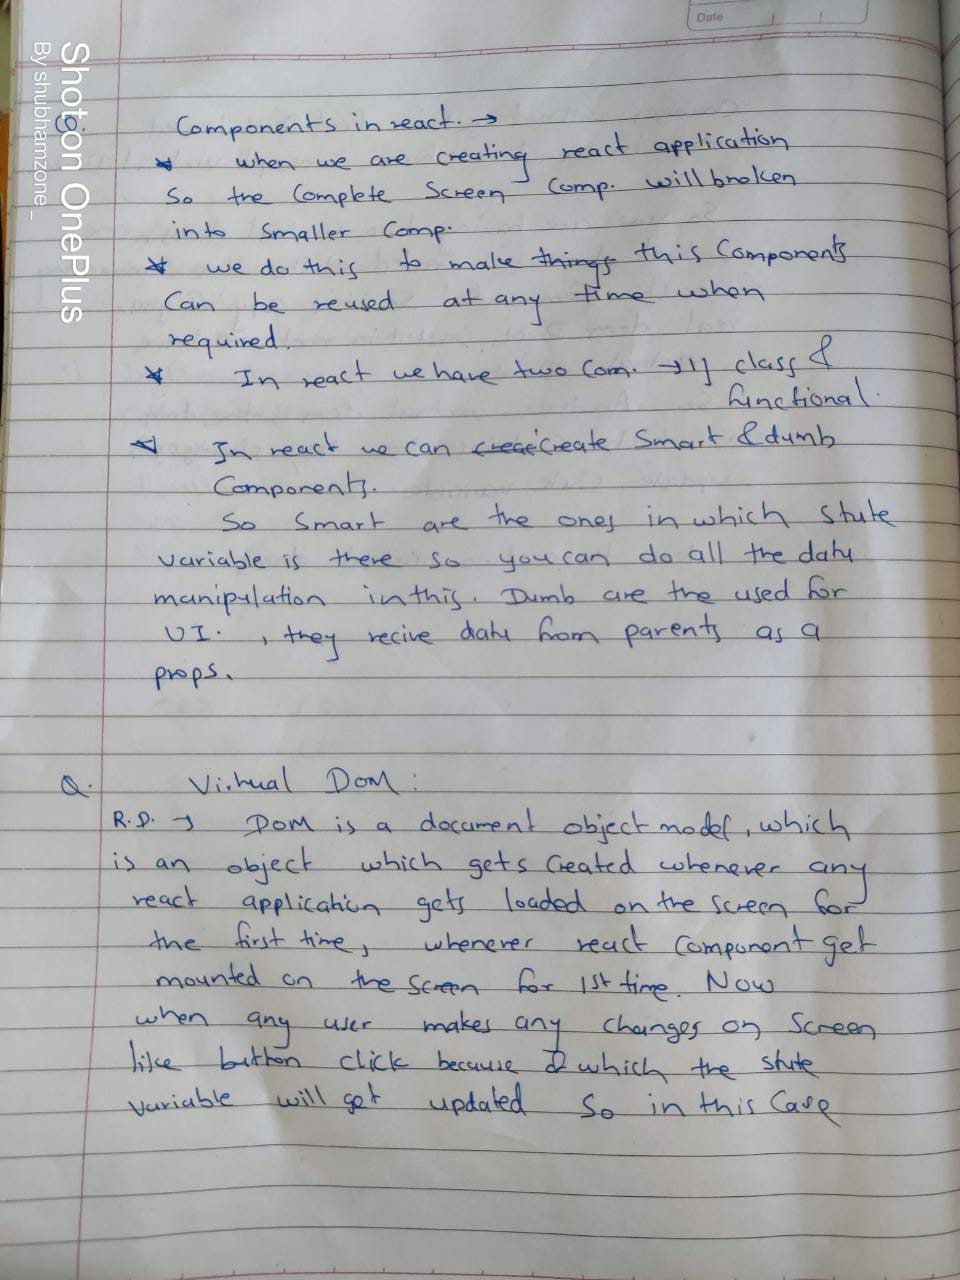 Date
Shot on OnePlus
By shubhamzone_
Q.
Components in react. →
* when we are creating react application
So the Complete Screen Comp. will broken
into Smaller Comp.
* we do this to make things this Components
Can be reused at any time when
required.
* In react we have two Com. → 1] class &
functional.
* In react we can creae create Smart & dumb
Components.
So Smart are the ones in which state
variable is there so you can do all the data
manipulation in this. Dumb are the used for
UI. , they recive data from parents as a
props.
Q. Virtual DOM :
R.D. → DOM is a document object model, which
is an object which gets Created whenever any
react application gets loaded on the screen for
the first time, whenever react Component get
mounted on the screen for 1st time. Now
when any user makes any changes on Screen
like button click because which the state
variable will get updated So in this Case